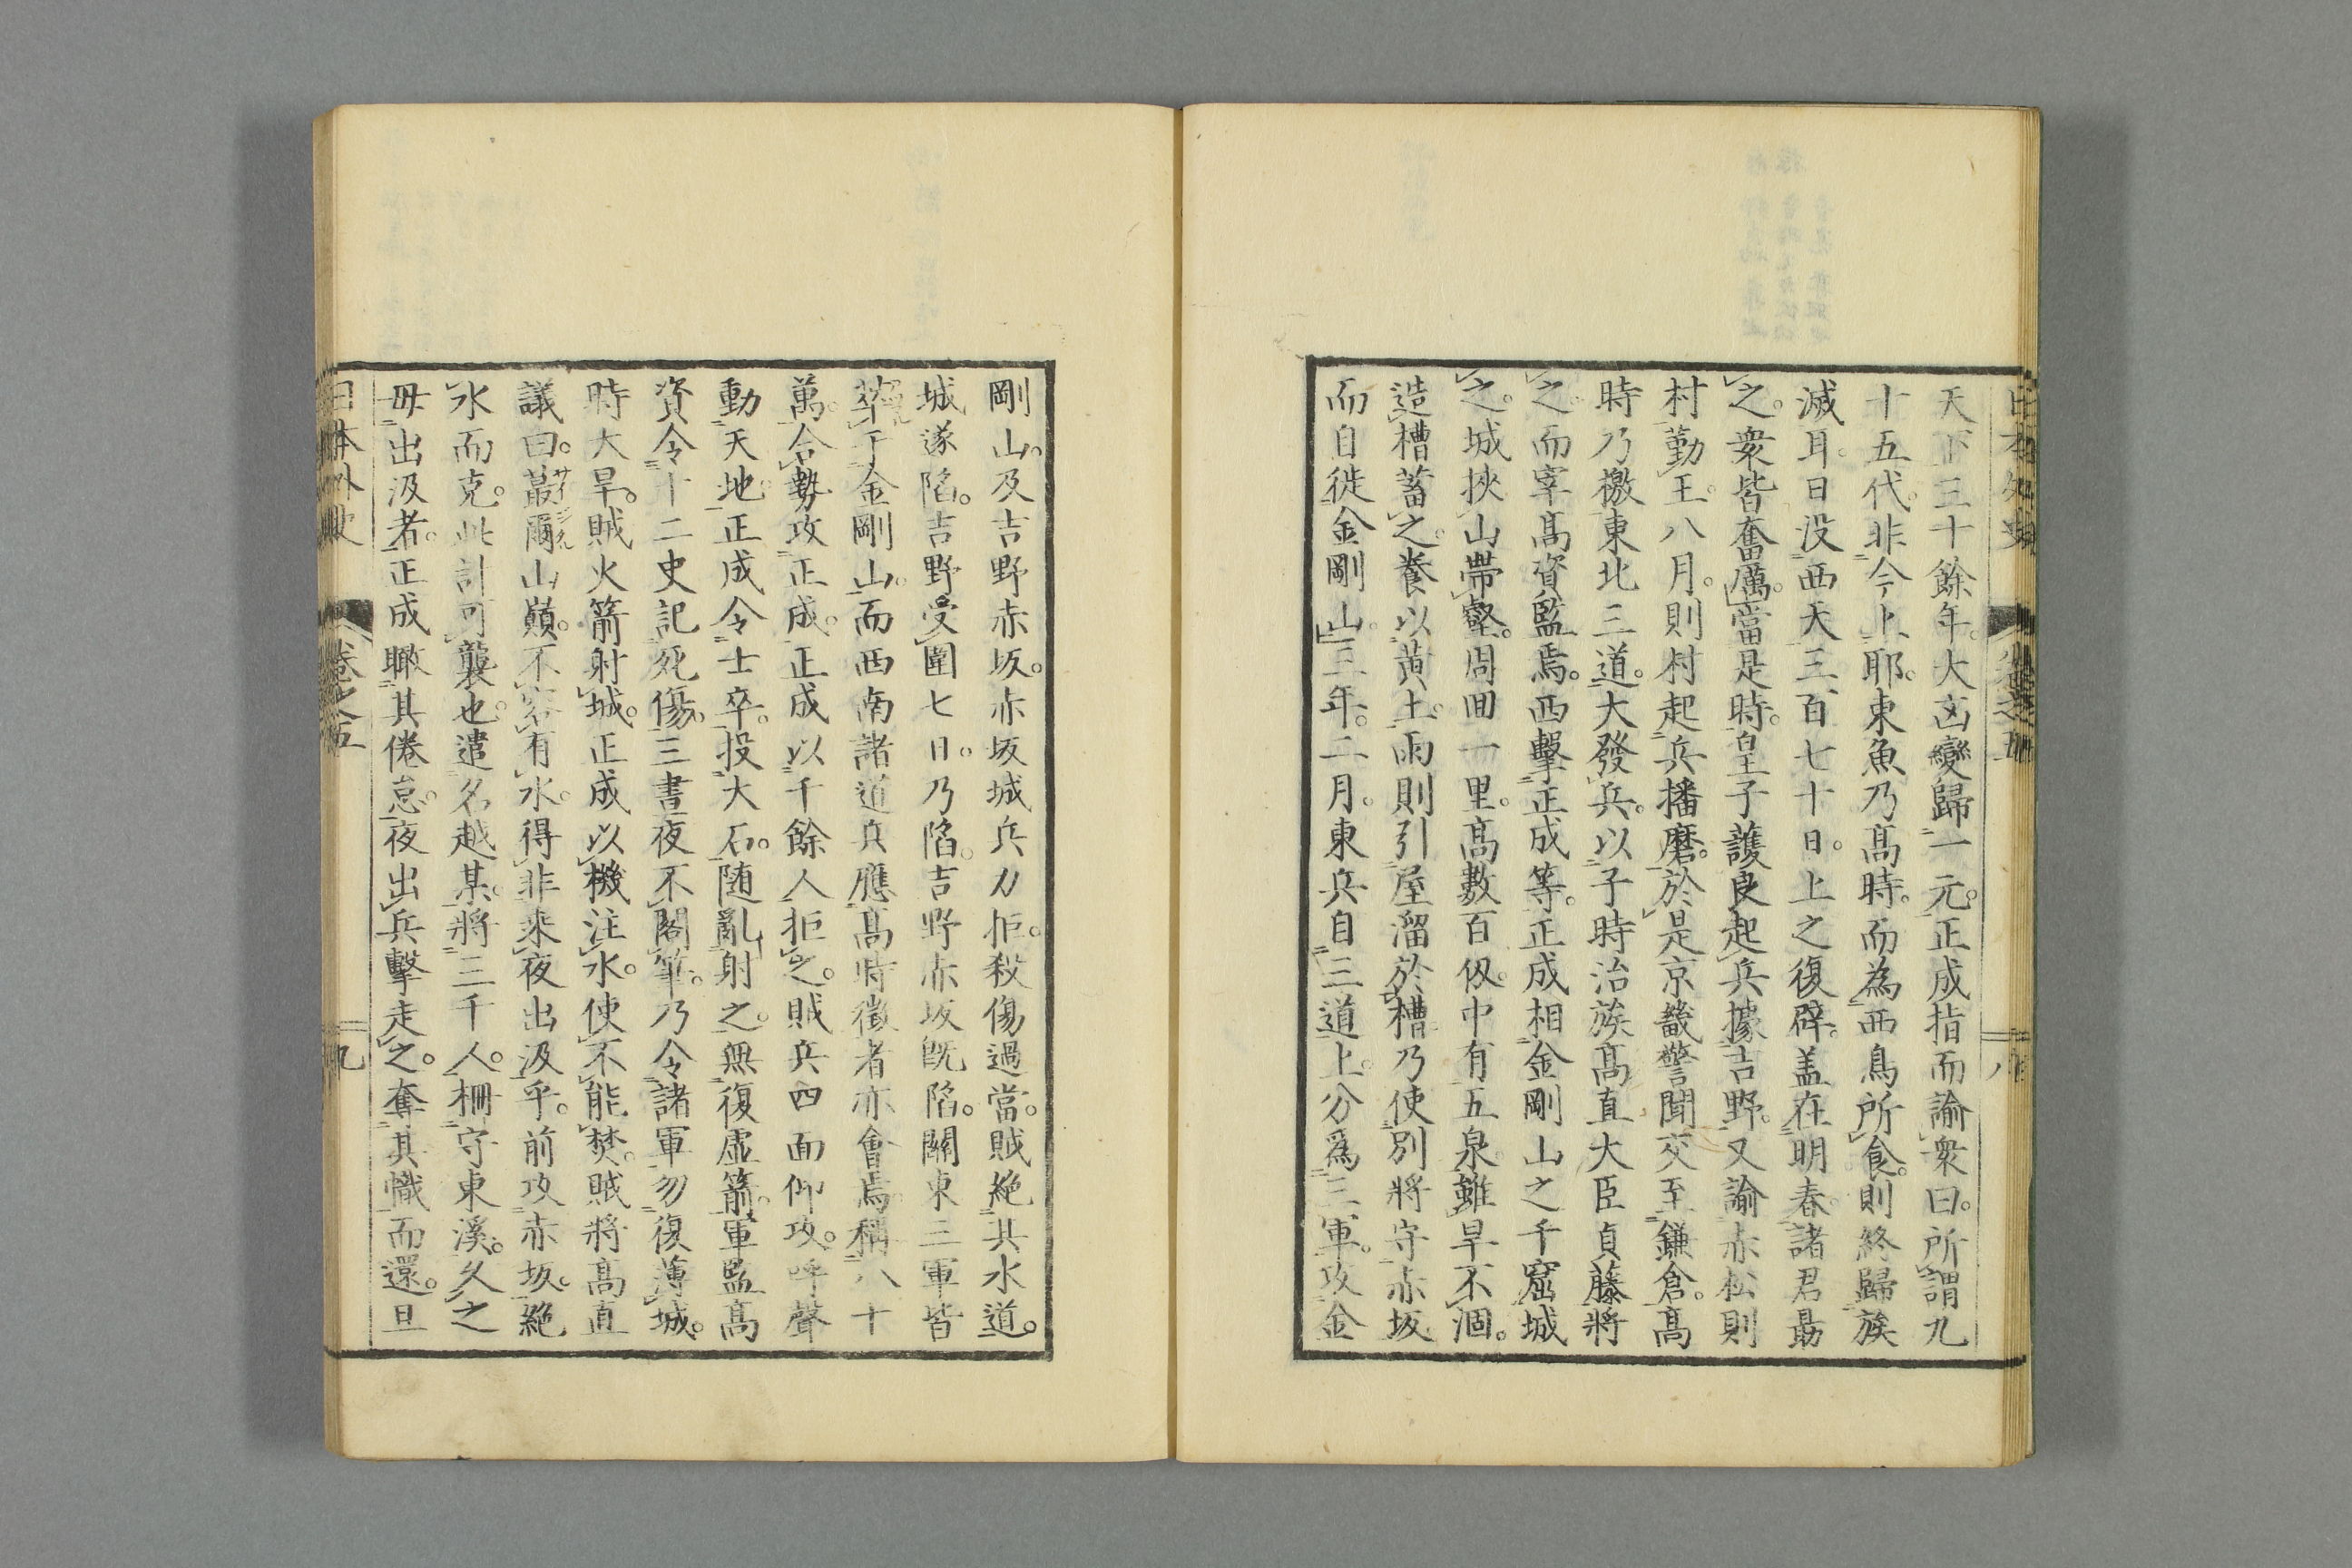 日本外史 卷之五 八
天下三十餘年。大凶變歸一元。正成指而諭衆曰。所謂九
十五代。非今上耶。東魚乃髙時。而為西鳥所食。則終歸族
滅耳。日没西天三百七十日。上之復辟。盖在明春。諸君勗
之。衆皆奮厲。當是時。皇子護良起兵據吉野。又諭赤松則
村勤王。八月。則村起兵播磨。於是京畿警聞交至鎌倉。髙
時乃檄東北三道。大發兵。以子時治族髙直大臣貞藤將
之。而宰髙資監焉。西擊正成等。正成相金剛山之千窟城
之。城挾山帶壑。周回一里。髙數百仭。中有五泉。雖旱不涸。
造槽蓄之。養以黃土。雨則引屋溜於槽。乃使別將守赤坂
而自徙金剛山。三年。二月。東兵自三道上。分爲三軍。攻金
剛山。及吉野赤坂。赤坂城兵力拒。殺傷過當。賊絶其水道。
城遂陷。吉野受圍七日。乃陷。吉野赤坂既陷。關東三軍皆
萃于金剛山。而西南諸道兵應髙時徵者亦會焉。稱八十
萬。合勢攻正成。正成以千餘人拒之。賊兵四面仰攻。呼聲
動天地。正成令士卒。投大石。随亂射之。無復虛箭。軍監髙
資令十二史記死傷。三晝夜不閣筆。乃令諸軍勿復薄城。
時大旱。賊火箭射城。正成以機注水。使不能焚。賊將髙直
議曰。蕞爾山巓。不容有水。得非乘夜出汲乎。前攻赤坂。絶
水而克。此計可襲也。遣名越某。將三千人。柵守東溪。久之
毋出汲者。正成瞰其倦怠。夜出兵擊走之。奪其幟而還。旦
日本外史 卷之五 九